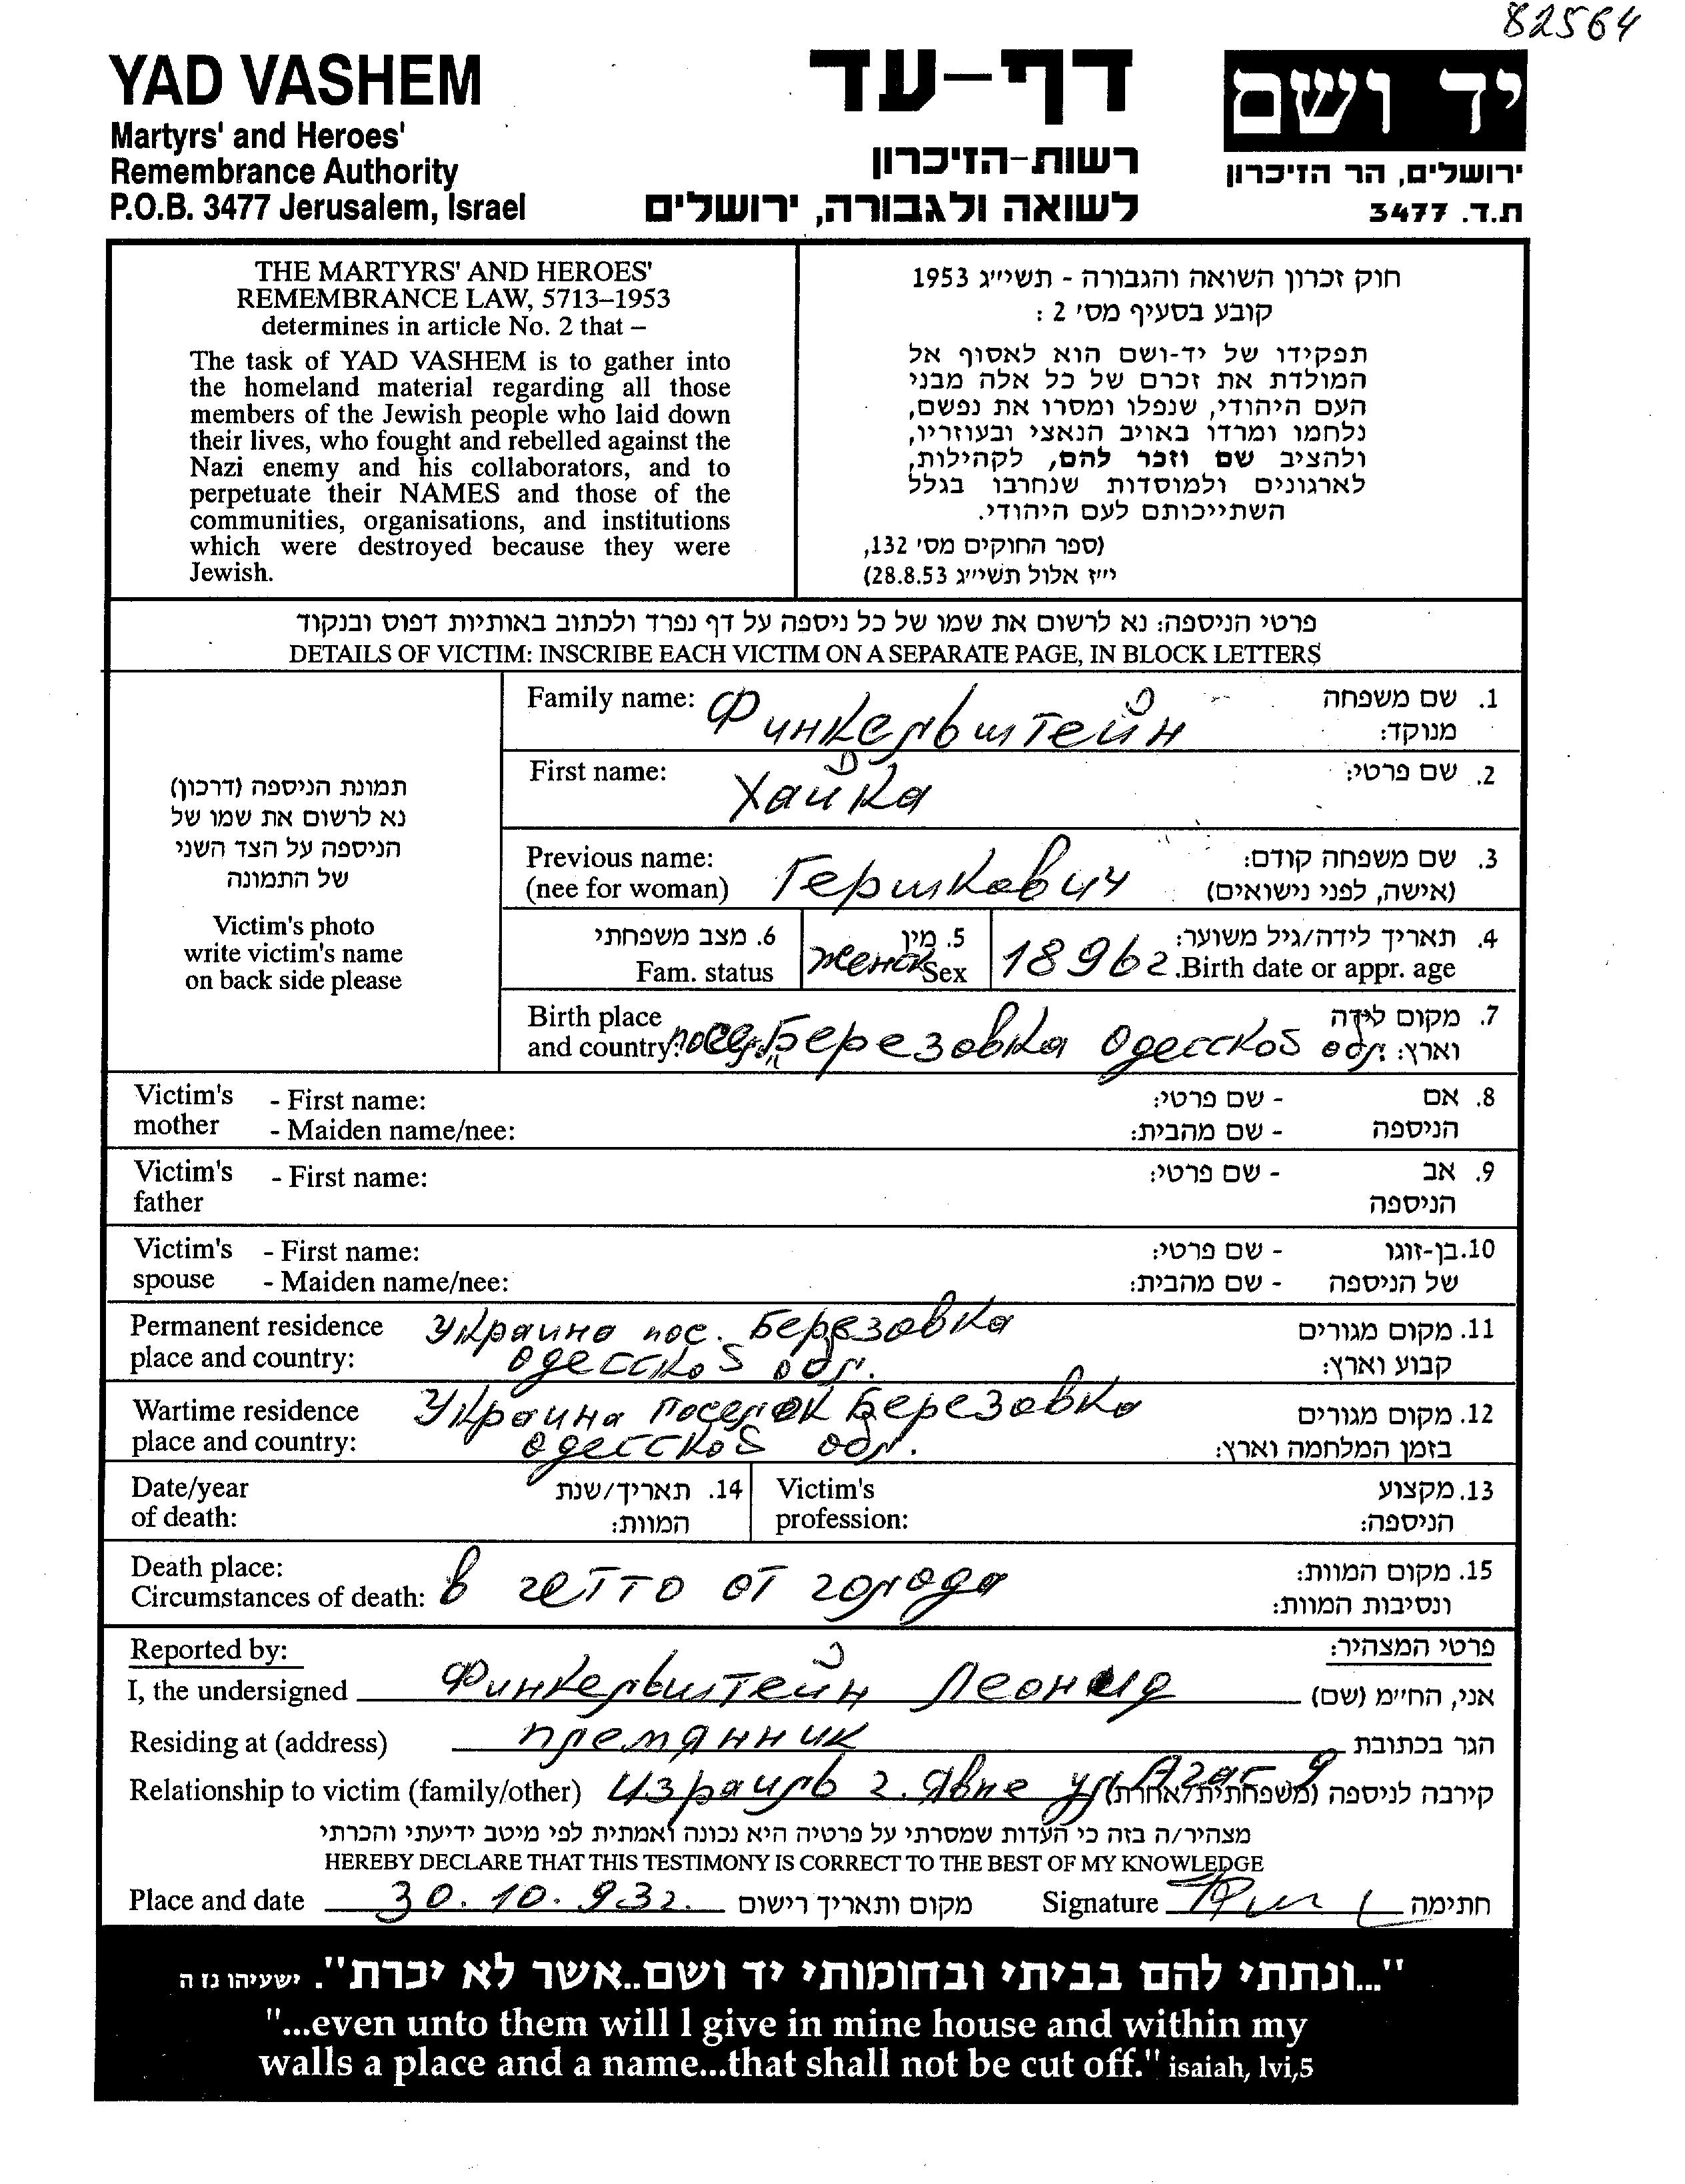 82564
YAD VASHEM
Martyrs' and Heroes'
Remembrance Authority
P.O.B. 3477 Jerusalem, Israel
דף-עד
רשות-הזיכרון
לשואה ולגבורה, ירושלים
יד ושם
ירושלים, הר הזיכרון
ת.ד. 3477
THE MARTYRS' AND HEROES'
REMEMBRANCE LAW, 5713–1953
determines in article No. 2 that –
The task of YAD VASHEM is to gather into
the homeland material regarding all those
members of the Jewish people who laid down
their lives, who fought and rebelled against the
Nazi enemy and his collaborators, and to
perpetuate their NAMES and those of the
communities, organisations, and institutions
which were destroyed because they were
Jewish.
חוק זכרון השואה והגבורה - תשי״ג 1953
קובע בסעיף מס׳ 2 :
תפקידו של יד-ושם הוא לאסוף אל
המולדת את זכרם של כל אלה מבני
העם היהודי, שנפלו ומסרו את נפשם,
נלחמו ומרדו באויב הנאצי ובעוזריו,
ולהציב שם וזכר להם, לקהילות,
לארגונים ולמוסדות שנחרבו בגלל
השתייכותם לעם היהודי.
(ספר החוקים מס׳ 132,
י״ז אלול תשי״ג 28.8.53)
פרטי הניספה: נא לרשום את שמו של כל ניספה על דף נפרד ולכתוב באותיות דפוס ובנקוד
DETAILS OF VICTIM: INSCRIBE EACH VICTIM ON A SEPARATE PAGE, IN BLOCK LETTERS
תמונת הניספה (דרכון)
נא לרשום את שמו של
הניספה על הצד השני
של התמונה
Victim's photo
write victim's name
on back side please
Family name: Финкельштейн 1. שם משפחה
מנוקד:
First name: Хайка 2. שם פרטי:
Previous name: 3. שם משפחה קודם:
(nee for woman) Гершкович (אישה, לפני נישואים)
6. מצב משפחתי 5. מין 4. תאריך לידה/גיל משוער:
Fam. status женск Sex 1896г. Birth date or appr. age
Birth place 7. מקום לידה
and country: посел. Березовка Одесской обл. וארץ:
Victim's - First name: - שם פרטי: 8. אם
mother - Maiden name/nee: - שם מהבית: הניספה
Victim's - First name: - שם פרטי: 9. אב
father הניספה
Victim's - First name: - שם פרטי: 10. בן-זוגו
spouse - Maiden name/nee: - שם מהבית: של הניספה
Permanent residence Украина пос. Березовка 11. מקום מגורים
place and country: Одесской обл. קבוע וארץ:
Wartime residence Украина поселок Березовка 12. מקום מגורים
place and country: Одесской обл. בזמן המלחמה וארץ:
Date/year 14. תאריך/שנת Victim's 13. מקצוע
of death: המוות: profession: הניספה:
Death place: 15. מקום המוות:
Circumstances of death: в гетто от голода ונסיבות המוות:
Reported by: פרטי המצהיר:
I, the undersigned Финкельштейн Леонид אני, החי״מ (שם)
Residing at (address) племянник הגר בכתובת
Relationship to victim (family/other) Израиль г. Явне ул. קירבה לניספה (משפחתית/אחרת)
מצהיר/ה בזה כי העדות שמסרתי על פרטיה היא נכונה ואמתית לפי מיטב ידיעתי והכרתי
HEREBY DECLARE THAT THIS TESTIMONY IS CORRECT TO THE BEST OF MY KNOWLEDGE
Place and date 30.10.93г. מקום ותאריך רישום Signature חתימה
"...ונתתי להם בביתי ובחומותי יד ושם..אשר לא יכרת". ישעיהו נז ה
"...even unto them will I give in mine house and within my
walls a place and a name...that shall not be cut off." isaiah, lvi,5